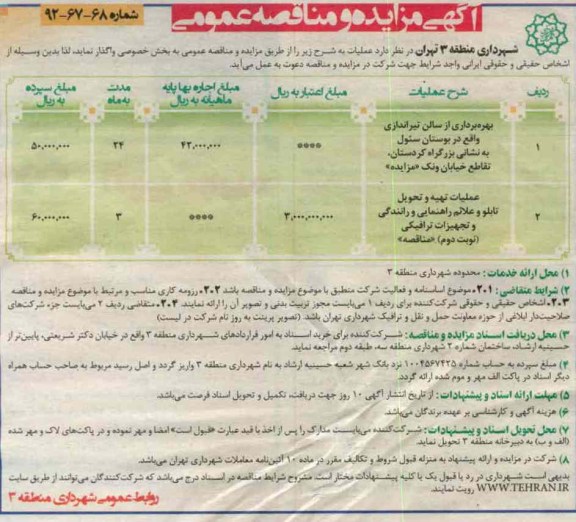 شماره ۶۸-۶۷-۹۲
آگهی مزایده و مناقصه عمومی
شهرداری منطقه ۳ تهران در نظر دارد عملیات به شرح زیر را از طریق مزایده و مناقصه عمومی به بخش خصوصی واگذار نماید، لذا بدین وسیله از
اشخاص حقیقی و حقوقی ایرانی واجد شرایط جهت شرکت در مزایده و مناقصه دعوت به عمل می‌آید.
ردیف شرح عملیات مبلغ اعتبار به ریال مبلغ اجاره بها پایه ماهیانه به ریال مدت به ماه مبلغ سپرده به ریال
۱ بهره‌برداری از سالن تیراندازی واقع در بوستان سئول به نشانی بزرگراه کردستان، تقاطع خیابان ونک «مزایده» **** ۴۲,۰۰۰,۰۰۰ ۲۴ ۵۰,۰۰۰,۰۰۰
۲ عملیات تهیه و تحویل تابلو و علائم راهنمایی و رانندگی و تجهیزات ترافیکی (نوبت دوم) «مناقصه» ۳,۰۰۰,۰۰۰,۰۰۰ **** ۳ ۶۰,۰۰۰,۰۰۰
۱) محل ارائه خدمات: محدوده شهرداری منطقه ۳
۲) شرایط متقاضی: ۲۰۱. موضوع اساسنامه و فعالیت شرکت منطبق با موضوع مزایده و مناقصه باشد ۲۰۲. رزومه کاری مناسب و مرتبط با موضوع مزایده و مناقصه
۲۰۳. اشخاص حقیقی و حقوقی شرکت‌کننده برای ردیف ۱ می‌بایست مجوز تربیت بدنی و تصویر آن را ارائه نمایند. ۲۰۴. متقاضی ردیف ۲ می‌بایست جزء شرکت‌های
صلاحیت‌دار ابلاغی از حوزه معاونت حمل و نقل و ترافیک شهرداری تهران باشد. (تصویر پرینت به روز نام شرکت در لیست)
۳) محل دریافت اسناد مزایده و مناقصه: شرکت‌کننده برای خرید اسناد به امور قراردادهای شهرداری منطقه ۳ واقع در خیابان دکتر شریعتی، پایین‌تر از
حسینیه ارشاد، ساختمان شماره ۲ شهرداری منطقه سه، طبقه دوم مراجعه نماید.
۴) مبلغ سپرده به حساب شماره ۱۰۰۴۵۶۷۴۲۵ نزد بانک شهر شعبه حسینیه ارشاد به نام شهرداری منطقه ۳ واریز گردد و اصل رسید مربوط به صاحب حساب همراه
دیگر اسناد در پاکت الف مهر و موم شده ارائه گردد.
۵) مهلت ارائه اسناد و پیشنهادات: از تاریخ انتشار آگهی ۱۰ روز جهت دریافت، تکمیل و تحویل اسناد فرصت می‌باشد.
۶) هزینه آگهی و کارشناسی بر عهده برندگان می‌باشد.
۷) محل تحویل اسناد و پیشنهادات: شرکت‌کننده می‌بایست مدارک را پس از اخذ با قید عبارت «قبول است» امضا و مهر نموده و در پاکت‌های لاک و مهر شده
(الف و ب) به دبیرخانه منطقه ۳ تحویل نماید.
۸) شرکت در مزایده و ارائه پیشنهاد به منزله قبول شروط و تکالیف مقرر در ماده ۱۰ آئین‌نامه معاملات شهرداری تهران می‌باشد.
بدیهی است شهرداری در رد یا قبول یک یا کلیه پیشنهادات مختار است. مشروح شرایط مناقصه در اسناد درج می‌باشد که شرکت‌کنندگان می‌توانند از طریق سایت
WWW.TEHRAN.IR رویت نمایند.
روابط عمومی شهرداری منطقه ۳